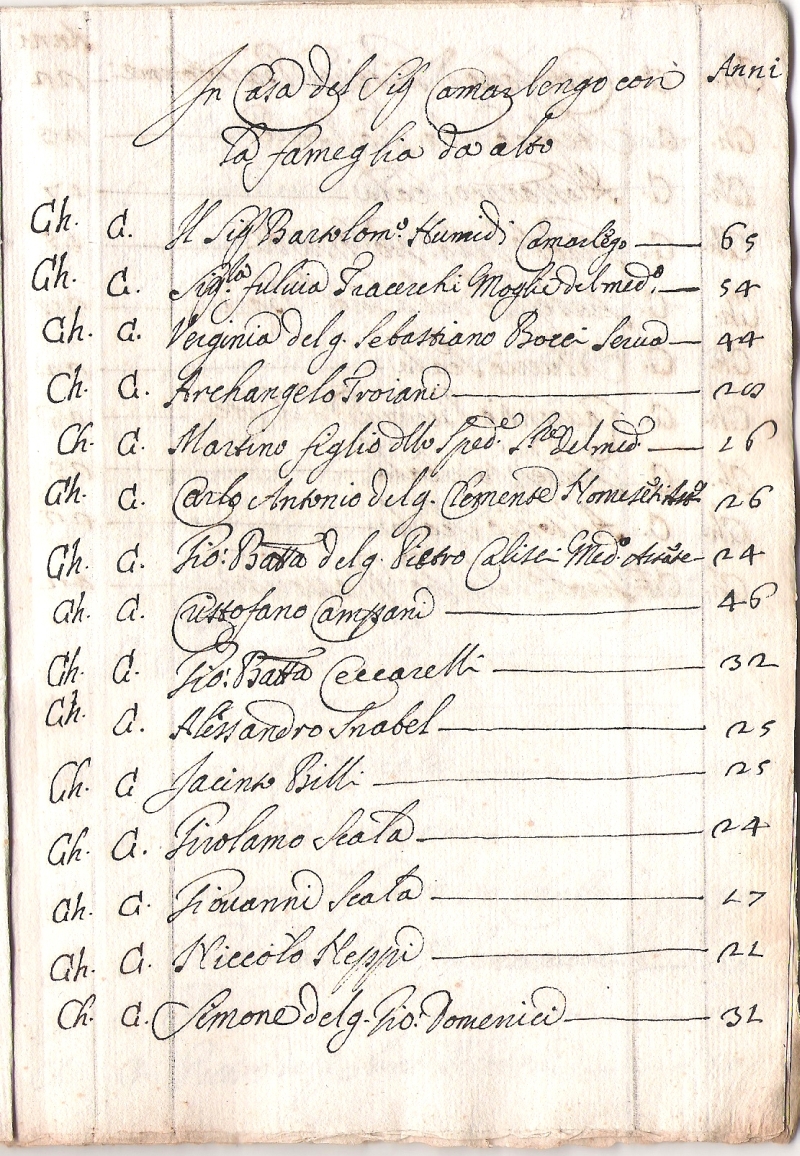 In Casa del Sigr Camarlengo con Anni
la fameglia da alto
Ch. C. Il Sigr Bartolomo. Humidi Camarlego 65
Ch. C. Sigra. fuluia Tracerchi Moglie del medo. 54
Ch. C. Verginia del q. Sebastiano Bocci Serua 44
Ch. C. Archangelo Troiani 20
Ch. C. Martino figlio dllo Sped. del med. 16
Ch. C. Carlo Antonio del q. Clemente 26
Ch. C. Gio: Batta del q. Pietro Calisei Medo. 24
Ch. C. Cristofano Campani 46
Ch. C. Gio: Batta Ceccarelli 32
Ch. C. Alessandro Snabel 25
Ch. C Jacinto Billi 25
Ch. C. Girolamo Scala 24
Ch. C. Giouanni Scala 17
Ch. C. Niccolo Neppi 21
Ch. C. Simone del q. Gio: Domenici 31